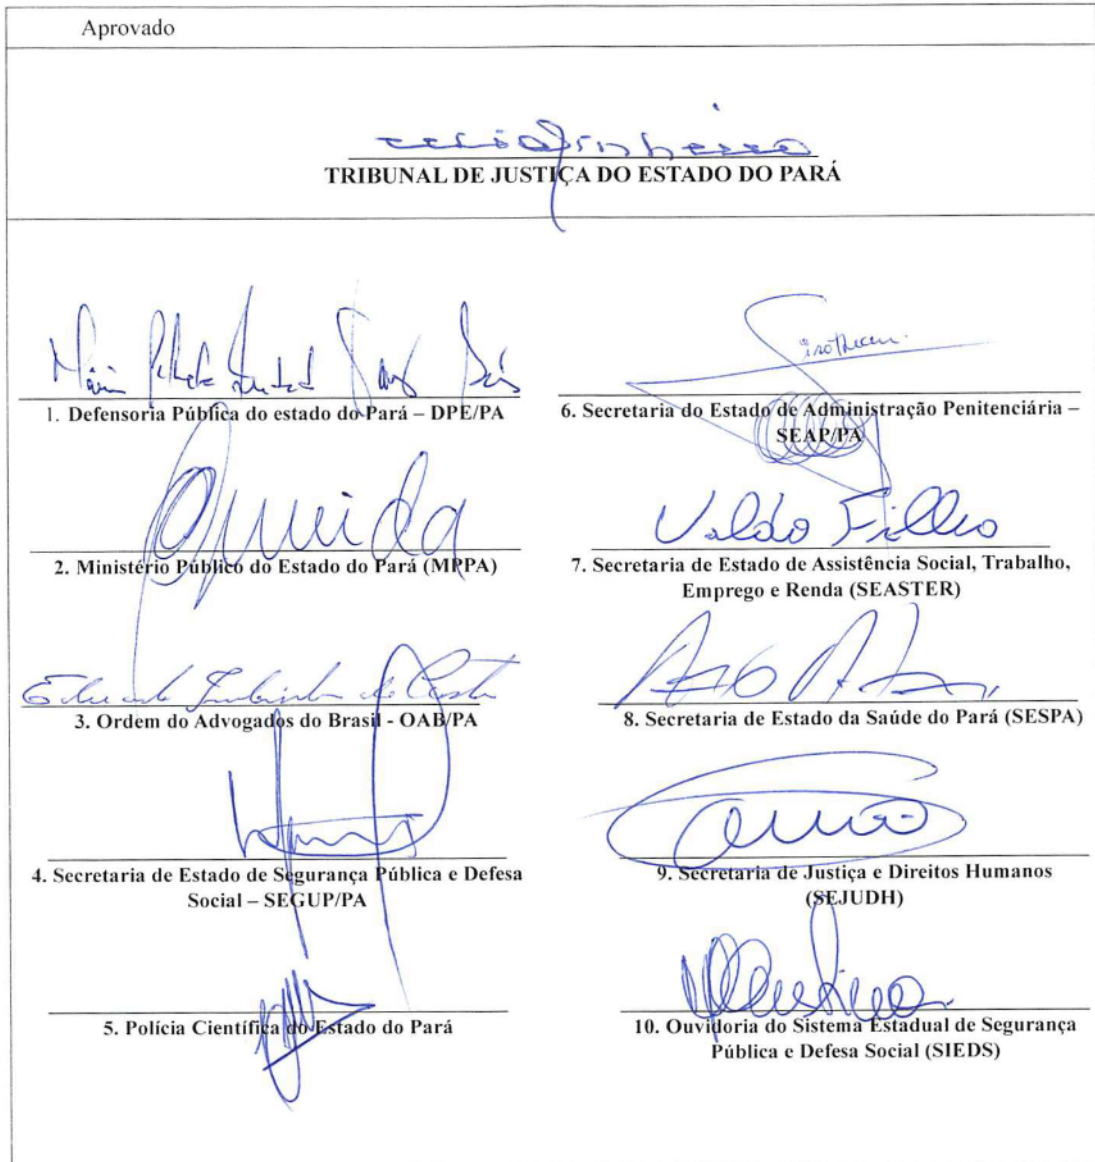 Aprovado
TRIBUNAL DE JUSTIÇA DO ESTADO DO PARÁ
1. Defensoria Pública do estado do Pará – DPE/PA
2. Ministério Público do Estado do Pará (MPPA)
3. Ordem do Advogados do Brasil - OAB/PA
4. Secretaria de Estado de Segurança Pública e Defesa
Social – SEGUP/PA
5. Polícia Científica do Estado do Pará
6. Secretaria do Estado de Administração Penitenciária –
SEAP/PA
Valdo Filho
7. Secretaria de Estado de Assistência Social, Trabalho,
Emprego e Renda (SEASTER)
8. Secretaria de Estado da Saúde do Pará (SESPA)
9. Secretaria de Justiça e Direitos Humanos
(SEJUDH)
10. Ouvidoria do Sistema Estadual de Segurança
Pública e Defesa Social (SIEDS)